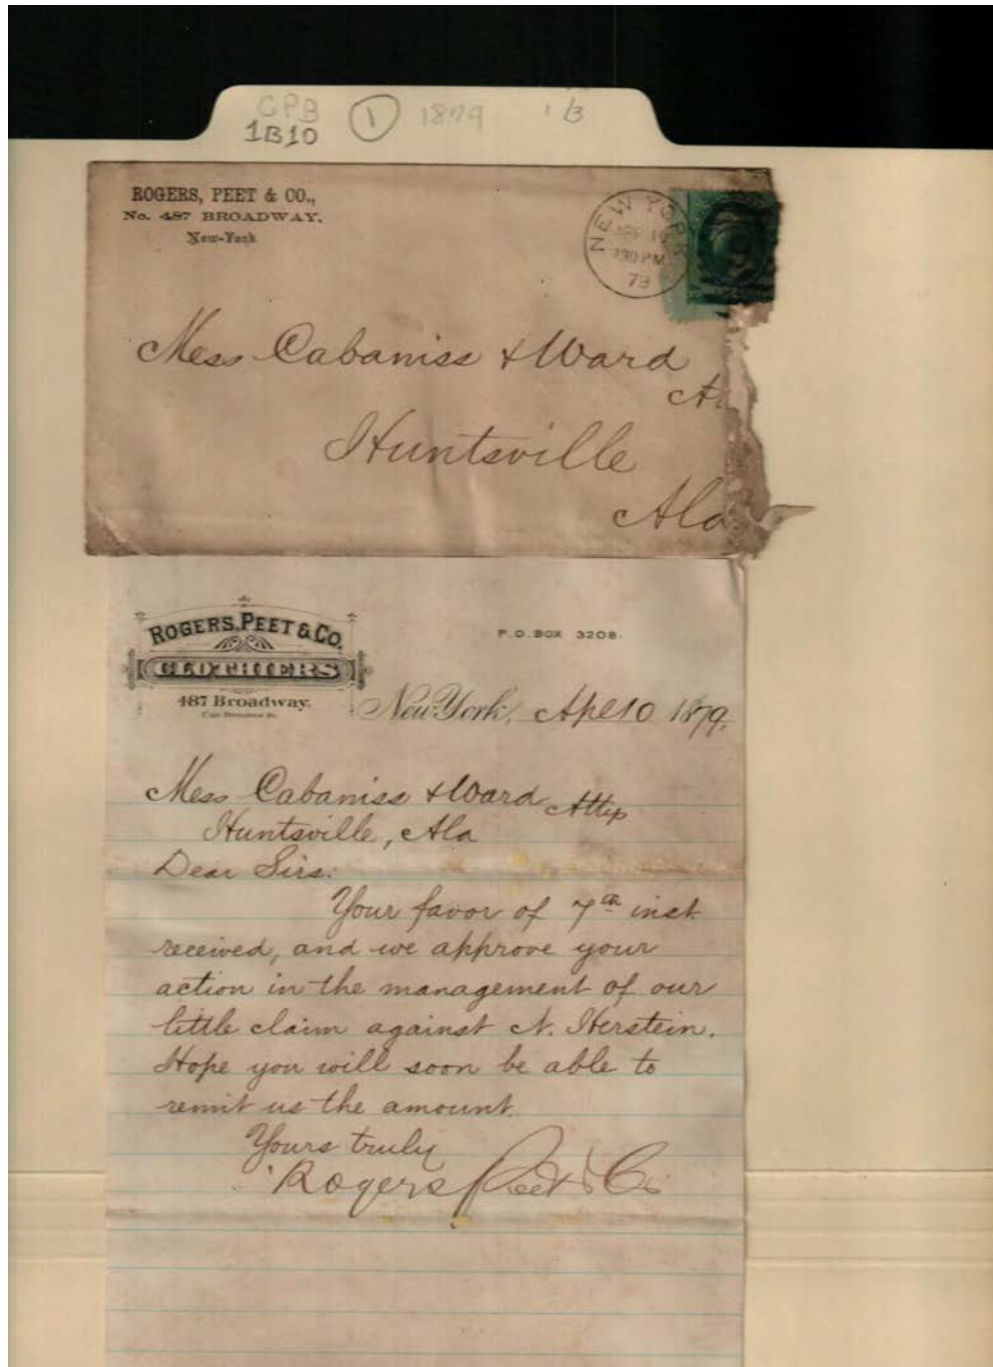 CPB
1B10
1
1879
1/3
ROGERS, PEET & CO.,
No. 487 BROADWAY,
New-York
NEW YORK
APR 10
730 PM
79
Mess Cabaniss & Ward
Huntsville
Ala
ROGERS, PEET & CO.
CLOTHIERS
487 Broadway.
P.O. BOX 3208.
New York, Apl 10 1879.
Mess Cabaniss & Ward Attys
Huntsville, Ala
Dear Sirs:
Your favor of 7th inst
received, and we approve your
action in the management of our
little claim against N. Herstein.
Hope you will soon be able to
remit us the amount.
Yours truly
Rogers Peet & Co